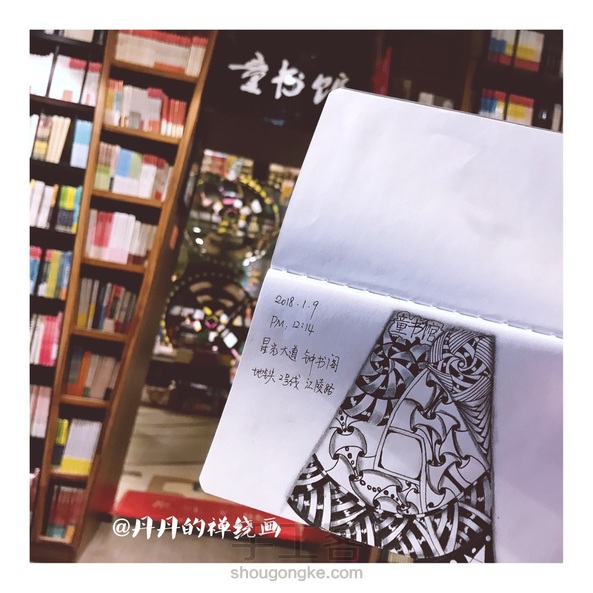 童书馆
2018.1.9
PM. 12:14
星光大道 钟书阁
地铁 2号线 江陵路
童书馆
@丹丹的禅绕画
手工客
shougongke.com